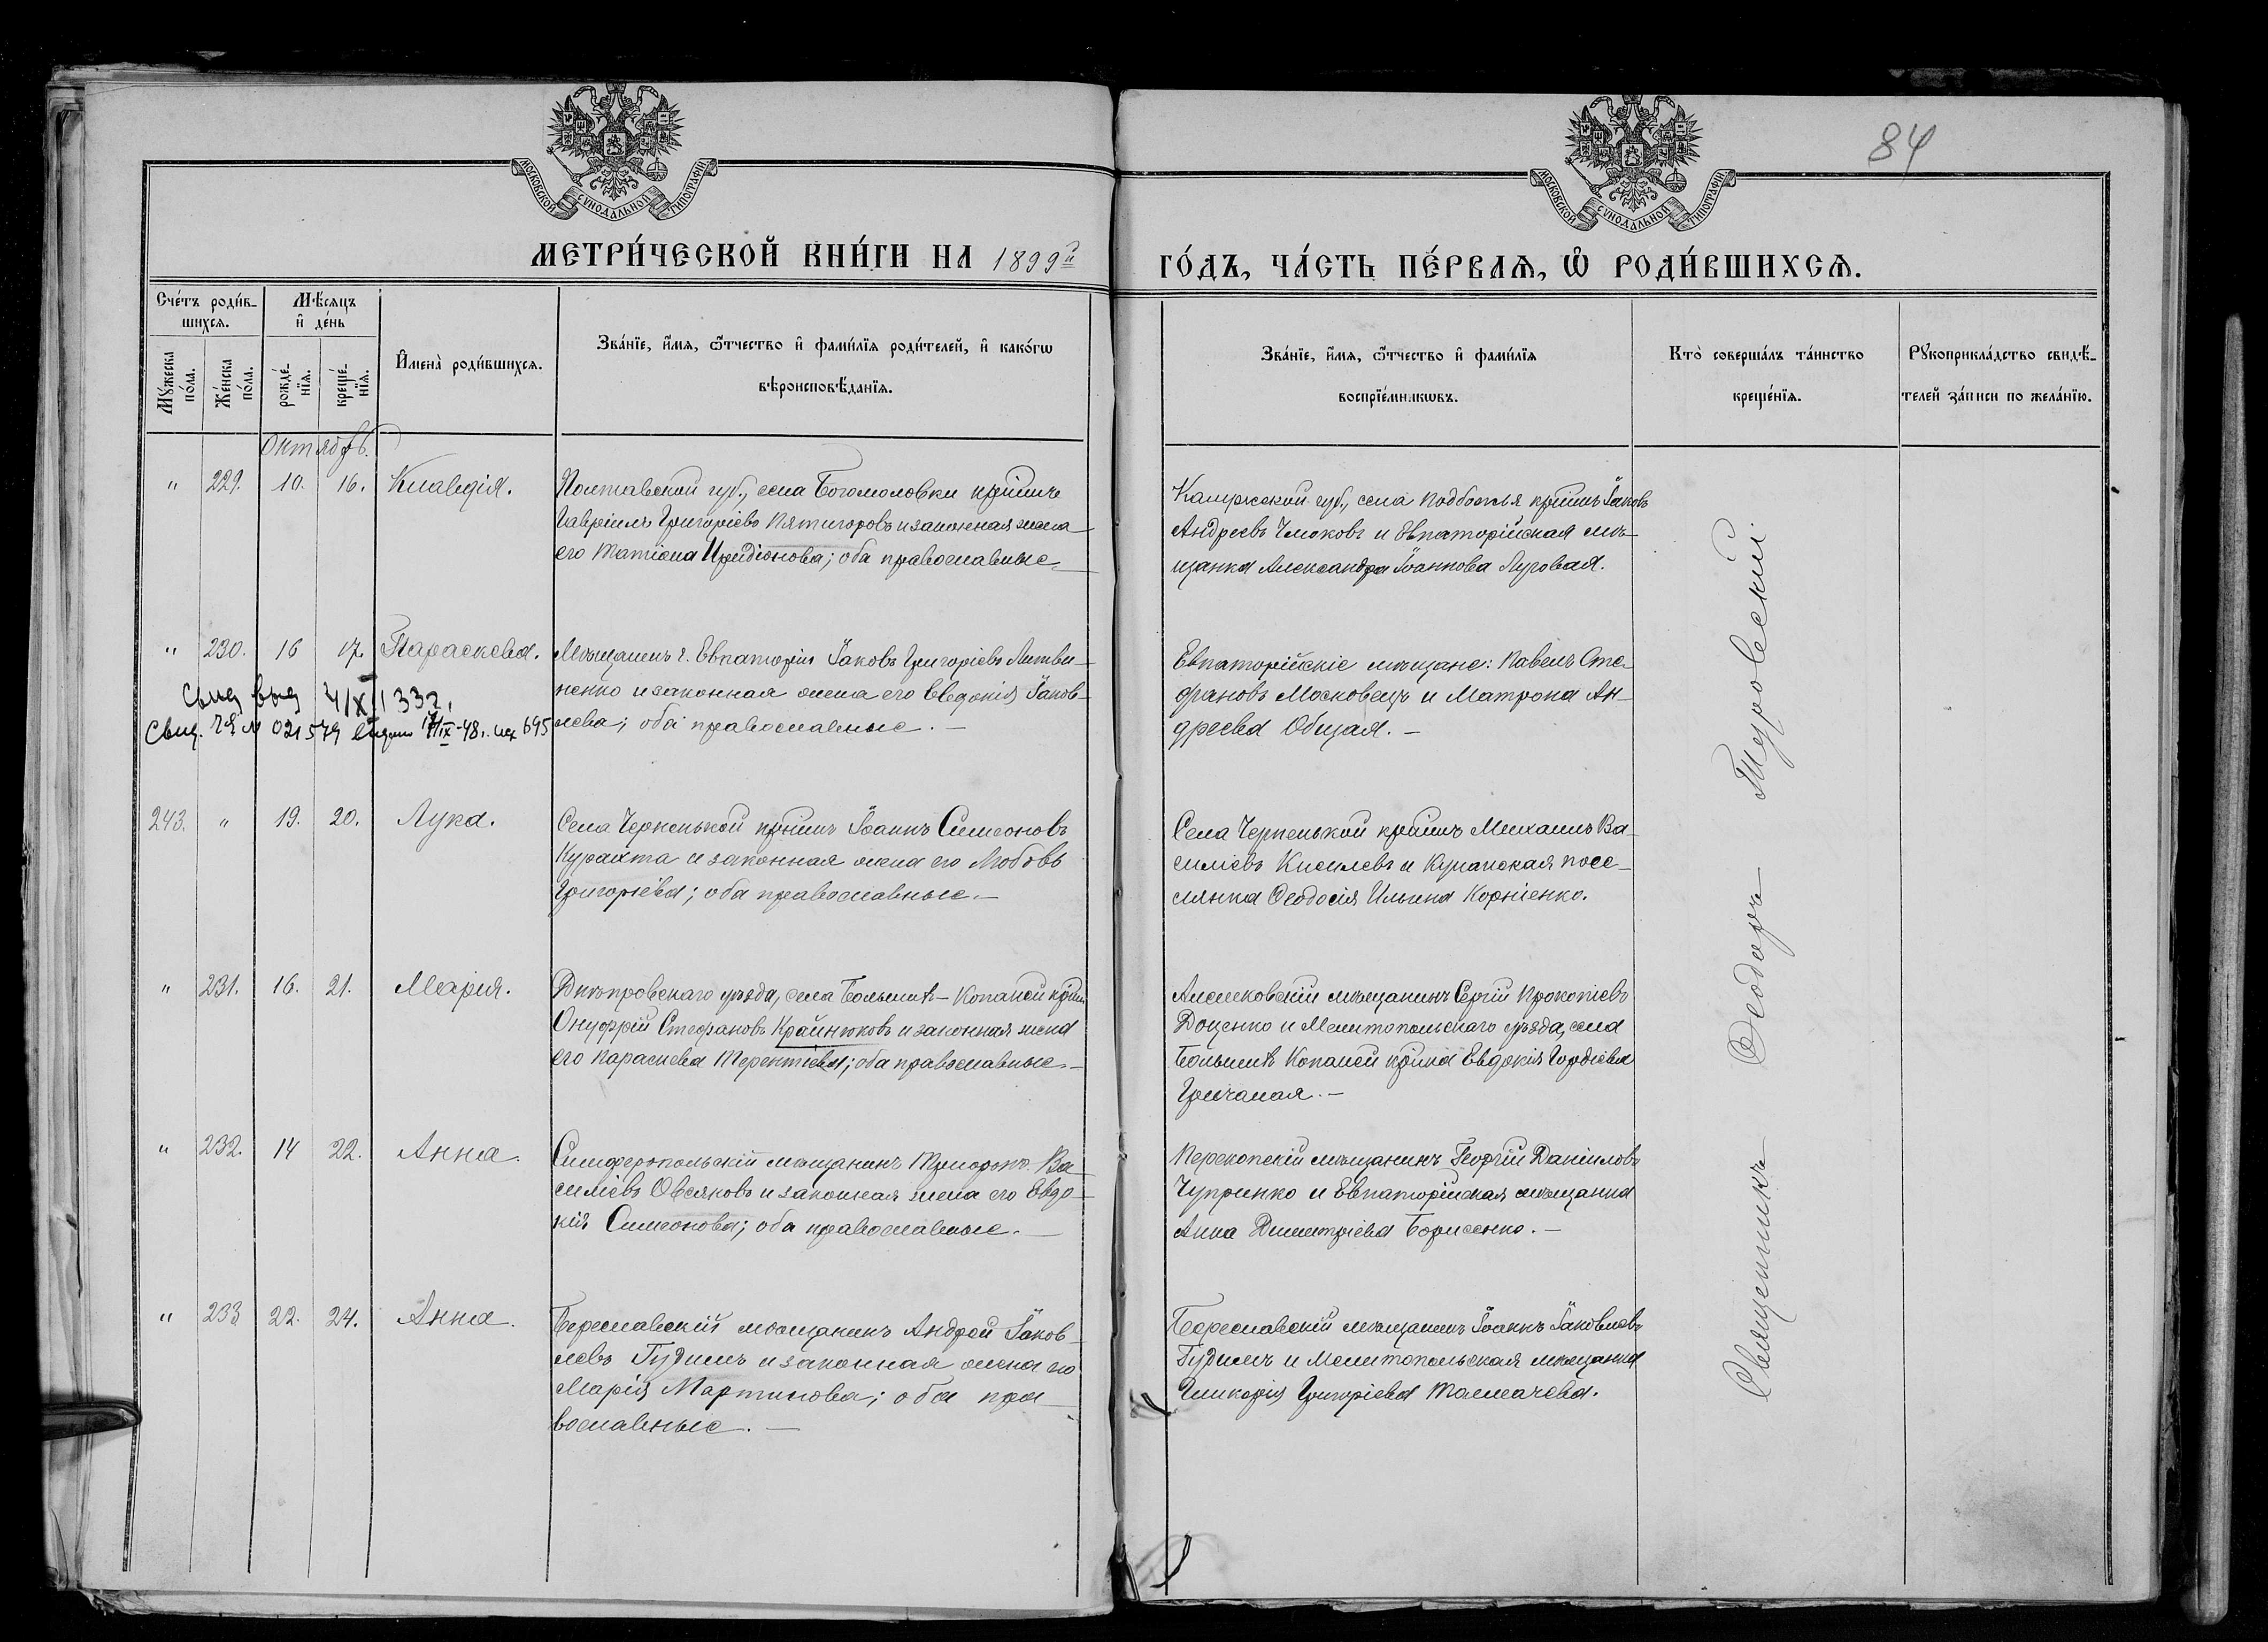 84
МОСКОВСКОЙ СУНОДАЛЬНОЙ ТИПОГРАФІИ
МОСКОВСКОЙ СУНОДАЛЬНОЙ ТИПОГРАФІИ
МЕТРИ́ЧЕСКОЙ КНИ́ГИ НА 1899й
ГО́ДЪ, ЧА́СТЬ ПЕ́РВАѦ, Ѽ РОДИ́ВШИХСѦ.
Сче́тъ роди́в-
шихсѧ.
Мꙋжеска по́ла.
Же́нска по́ла.
Мѣ́сѧцъ
и҆ де́нь
рожде́-
нїѧ.
креще́-
нїѧ.
И҆мена̀ роди́вшихсѧ.
Зва́нїе, и҆́мѧ, ѻ҆́тчество и҆ фами́лїѧ роди́телей, и҆ како́гѡ
вѣроисповѣ́данїѧ.
Зва́нїе, и҆́мѧ, ѻ҆́тчество и҆ фами́лїѧ
воспрїе́мникѡвъ.
Кто̀ соверша́лъ та́инство
креще́нїѧ.
Рꙋкоприкла́дство свидѣ́-
телей за́писи по жела́нїю.
Октябрь.
" 229. 10. 16. Клавдія.
Полтавской губ., села Богомоловки кр͠нинъ
Гавріилъ Григоріевъ Пятигоровъ и законная жена
его Татіана Иридіонова; оба православные.
Калужской губ., села Подбожья кр͠нинъ Іаковъ
Андреевъ Чмоковъ и Евпаторійская мѣ-
щанка Александра Іоаннова Луговая.
" 230. 16 17. Параскева.
Мѣщанинъ г. Евпаторіи Іаковъ Григоріевъ Литви-
ненко и законная жена его Евдокія Іаков-
лева; оба православные. —
Евпаторійскіе мѣщане: Павелъ Сте-
фановъ Московецъ и Матрона Ан-
дреева Общая. —
Свид. 021579 17/IX-48г. 695
243. " 19. 20. Лука.
Села Черненькой кр͠нинъ Іоаннъ Симеоновъ
Курахта и законная жена его Любовь
Григоріева; оба православные. —
Села Черненькой кр͠нинъ Михаилъ Ва-
силіевъ Киселевъ и посе-
лянка Ѳеодосія Ильина Корніенко.
" 231. 16. 21. Марія.
Днѣпровскаго уѣзда, села Большихъ-Копаней кр͠нинъ
Онуфрій Стефановъ Крайнюковъ и законная жена
его Параскева Терентіева; оба православные. —
Алешковскій мѣщанинъ Сергій Прокопіевъ
Доценко и Мелитопольскаго уѣзда, села
Большихъ Копаней кр͠нка Евдокія Гордіева
Гричаная. —
" 232. 14 22. Анна.
Симферопольскій мѣщанинъ Трифонъ Ва-
силіевъ Овсяковъ и законная жена его Евдо-
кія Симеонова; оба православные. —
Перекопскій мѣщанинъ Георгій Даніиловъ
Чупринко и Евпаторійская мѣщанка
Анна Димитріева Борисенко. —
" 233 22. 24. Анна.
Береславскій мѣщанинъ Андрей Іаков-
левъ Гудимъ и законная жена его
Марія Мартинова; оба пра-
вославные. —
Береславскій мѣщанинъ Іоаннъ Іаковлевъ
Гудимъ и Мелитопольская мѣщанка
Гликерія Григоріева Толмачева.
Священникъ Ѳеодоръ Туровскій